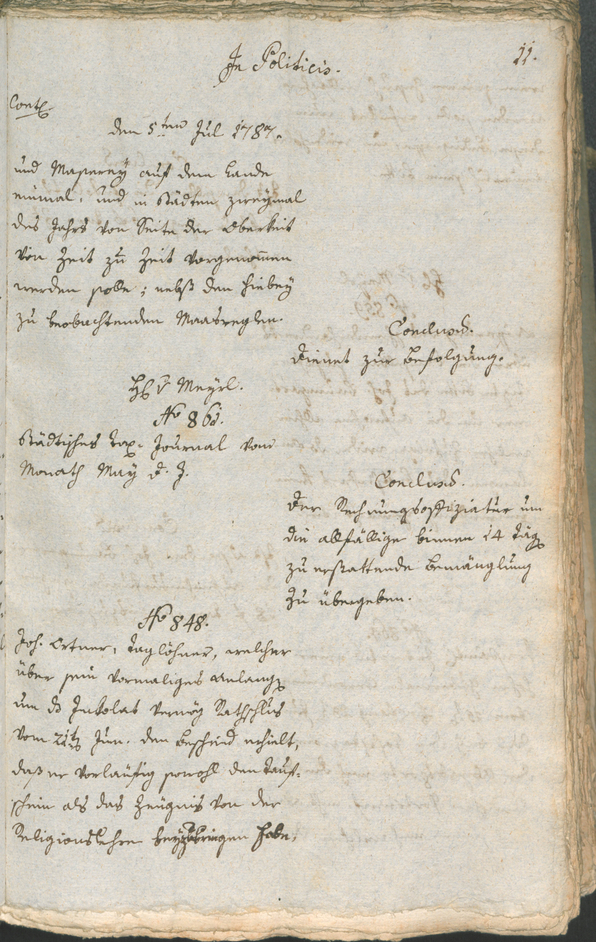 In Politicis.
11.
Cont
den 5ten Jul 1787.
und Masserey auf dem Lande
einmal, und in Städten zweymal
des Jahrs von Seite der Oberkeit
von Zeit zu Zeit vorgenommen
werden solle; nebst den hiebey
zu beobachtenden Maasreglen.
Conclusũ.
Dienet zur Befolgung.
H v Meyrl.
No 861.
Städtisches Tax-Journal vom
Monath May d. J.
Conclusũ.
Der Rechnungsoffiziatur um
die allfällige binnen 14 Täg
zu erstattende Bemänglung
zu übergeben.
No 848.
Joh. Ortner, Taglöhner, welcher
über sein vormaliges Anlang
um do Inkolat vermög Rathschlus
vom 21ten Jun. den Bescheid erhielt,
daß er vorläufig sowohl den Tauf-
schein als das Zeugnis von der
Religionslehre beyzubringen habe,